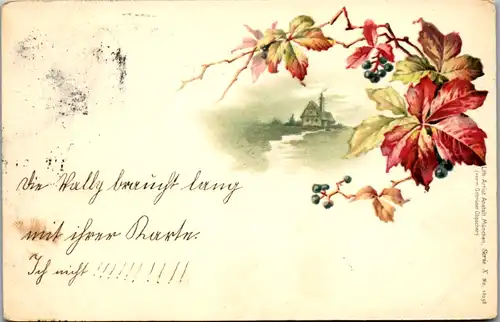 Die Wally braucht lang
mit ihrer Karte.
Ich nicht !!!!!!!!!
Lith. Artist. Anstalt München, Serie X No. 16038
(vorm. Gebrüder Obpacher)